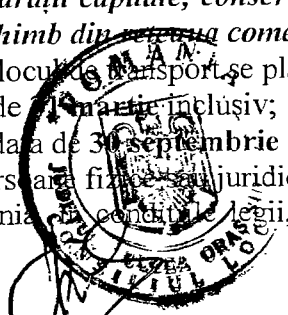 arații capitale, conser
himb din rețeaua come
locul de transport se pl
de 31 martie inclusiv;
data de 30 septembrie
rsoane fizice sau juridi
nia în condițiile legii,
ROMÂN
ORAȘ